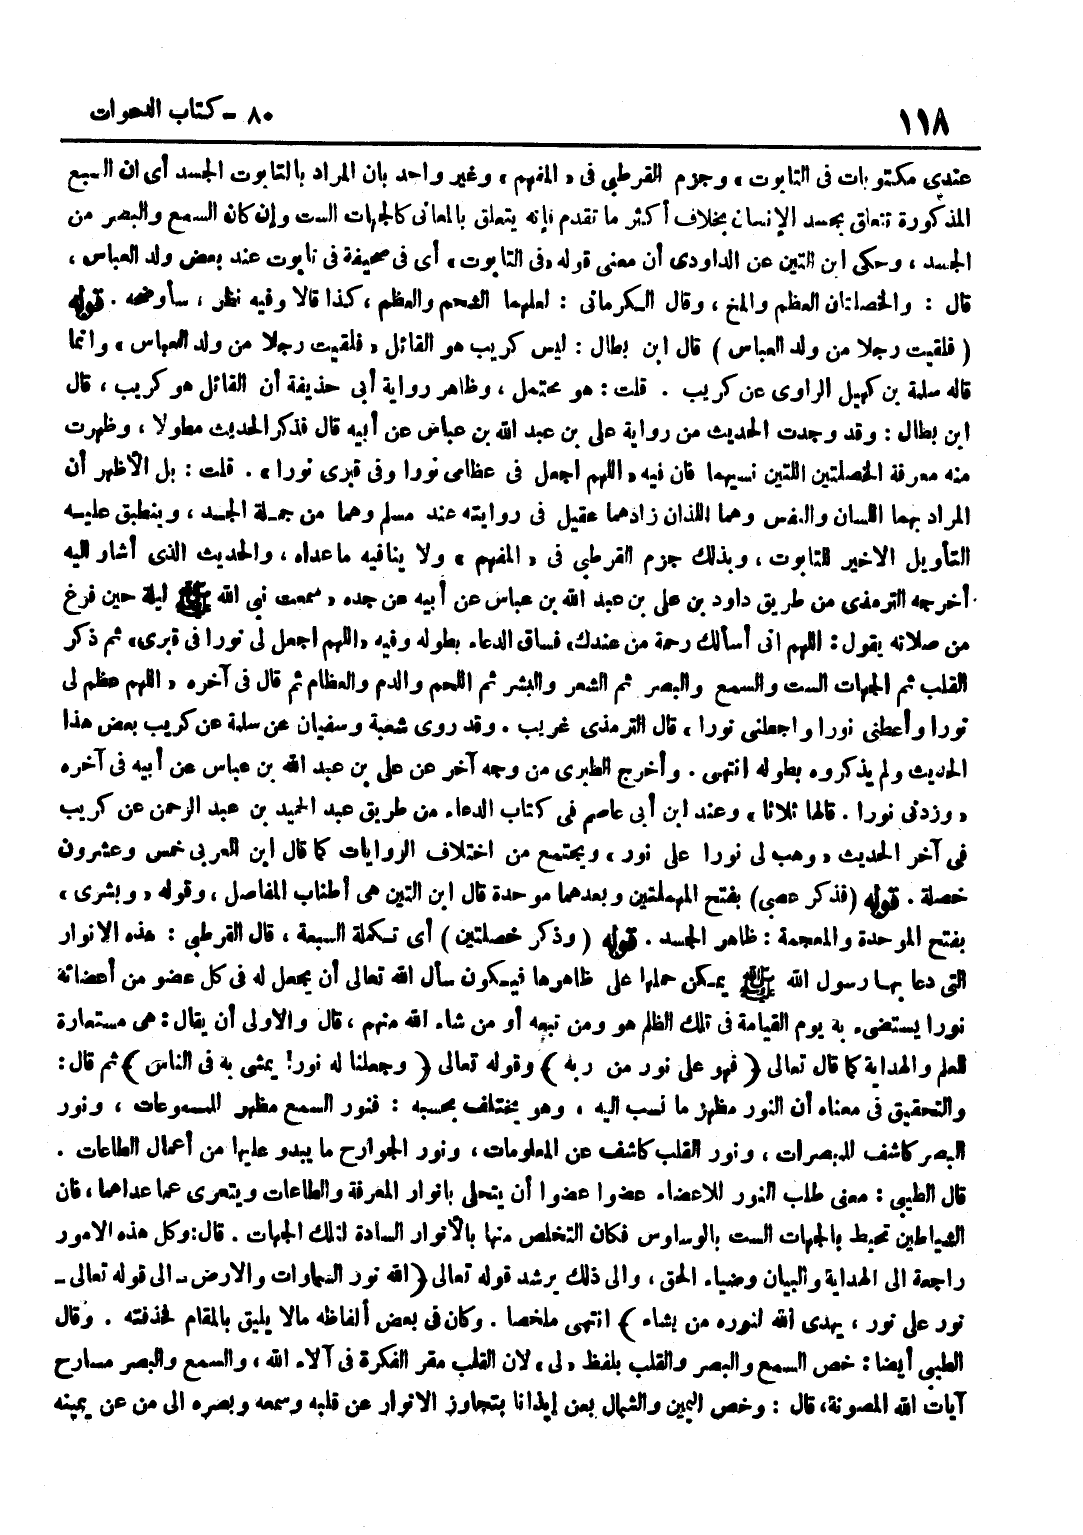 ١١٨
٨٠ - كتاب الدعوات
عندى مكتوبات فى التابوت » وجزم القرطبى فى « المفهم » وغير واحد بان المراد بالتابوت الجسد أى ان السبع
المذكورة تتعلق بجسد الإنسان بخلاف أكثر ما تقدم فإنه يتعلق بالمعانى كالجهات الست وإن كان السمع والبصر من
الجسد ، وحكى ابن التين عن الداودى أن معنى قوله « فى التابوت » أى فى صحيفة فى تابوت عند بعض ولد العباس ،
قال : والخصلتان العظم والمخ ، وقال الكرمانى : لعلهما الشحم والعظم ، كذا قالا وفيه نظر ، سأوضحه . قوله
( فلقيت رجلا من ولد العباس ) قال ابن بطال : ليس كريب هو القائل « فلقيت رجلا من ولد العباس » وانما
قاله سلمة بن كهيل الراوى عن كريب . قلت : هو محتمل ، وظاهر رواية أبى حذيفة أن القائل هو كريب ، قال
ابن بطال : وقد وجدت الحديث من رواية على بن عبد الله بن عباس عن أبيه قال فذكر الحديث مطولا ، وظهرت
منه معرفة الخصلتين اللتين نسيهما فان فيه « اللهم اجعل فى عظامى نورا وفى قبرى نورا » . قلت : بل الأظهر أن
المراد بهما اللسان والنفس وهما اللذان زادهما عقيل فى روايته عند مسلم وهما من جملة الجسد ، وينطبق عليه
التأويل الاخير للتابوت ، وبذلك جزم القرطبى فى « المفهم » ولا ينافيه ماعداه ، والحديث الذى أشار اليه
أخرجه الترمذى من طريق داود بن على بن عبد الله بن عباس عن أبيه عن جده « سمعت نبى الله ﷺ ليلة حين فرغ
من صلاته يقول : اللهم انى أسألك رحمة من عندك» فساق الدعاء بطوله وفيه «اللهم اجعل لى نورا فى قبرى» ثم ذكر
القلب ثم الجهات الست والسمع والبصر ثم الشعر والبشر ثم اللحم والدم والعظام ثم قال فى آخره « اللهم عظم لى
نورا وأعطنى نورا واجعلنى نورا » قال الترمذى غريب . وقد روى شعبة وسفيان عن سلمة عن كريب بعض هذا
الحديث ولم يذكروه بطوله انتهى . وأخرج الطبرى من وجه آخر عن على بن عبد الله بن عباس عن أبيه فى آخره
« وزدنى نورا . قالها ثلاثا » وعند ابن أبى عاصم فى كتاب الدعاء من طريق عبد الحميد بن عبد الرحمن عن كريب
فى آخر الحديث « وهب لى نورا على نور » ويجتمع من اختلاف الروايات كما قال ابن العربى خمس وعشرون
خصلة . قوله ( فذكر عصبى ) بفتح المهملتين وبعدهما موحدة قال ابن التين هى أطناب المفاصل ، وقوله « وبشرى »
بفتح الموحدة والمعجمة : ظاهر الجسد . قوله ( وذكر خصلتين ) أى تكملة السبعة ، قال القرطبى : هذه الانوار
التى دعا بها رسول الله ﷺ يمكن حملها على ظاهرها فيكون سأل الله تعالى أن يجعل له فى كل عضو من أعضائه
نورا يستضىء به يوم القيامة فى تلك الظلم هو ومن تبعه أو من شاء الله منهم ، قال والاولى أن يقال : هى مستعارة
للعلم والهداية كما قال تعالى ﴿ فهو على نور من ربه ﴾ وقوله تعالى ﴿ وجعلنا له نورا يمشى به فى الناس ﴾ ثم قال :
والتحقيق فى معناه أن النور مظهر ما نسب اليه ، وهو يختلف بحسبه : فنور السمع مظهر للمسموعات ، ونور
البصر كاشف للمبصرات ، ونور القلب كاشف عن المعلومات ، ونور الجوارح ما يبدو عليها من أعمال الطاعات .
قال الطيبى : معنى طلب النور للاعضاء عضوا عضوا أن يتحلى بانوار المعرفة والطاعات ويتعرى عما عداهما ، فان
الشياطين تحيط بالجهات الست بالوساوس فكان التخلص منها بالأنوار السادة لتلك الجهات . قال : وكل هذه الامور
راجعة الى الهداية والبيان وضياء الحق ، والى ذلك يرشد قوله تعالى ﴿ الله نور السماوات والارض ـ الى قوله تعالى ـ
نور على نور ، يهدى الله لنوره من يشاء ﴾ انتهى ملخصا . وكان فى بعض ألفاظه مالا يليق بالمقام فحذفته . وقال
الطيبى أيضا : خص السمع والبصر والقلب بلفظ « لى » لان القلب مقر الفكرة فى آلاء الله ، والسمع والبصر مسارح
آيات الله المصونة، قال : وخص اليمين والشمال بعن إيذانا بتجاوز الانوار عن قلبه وسمعه وبصره الى من عن يمينه